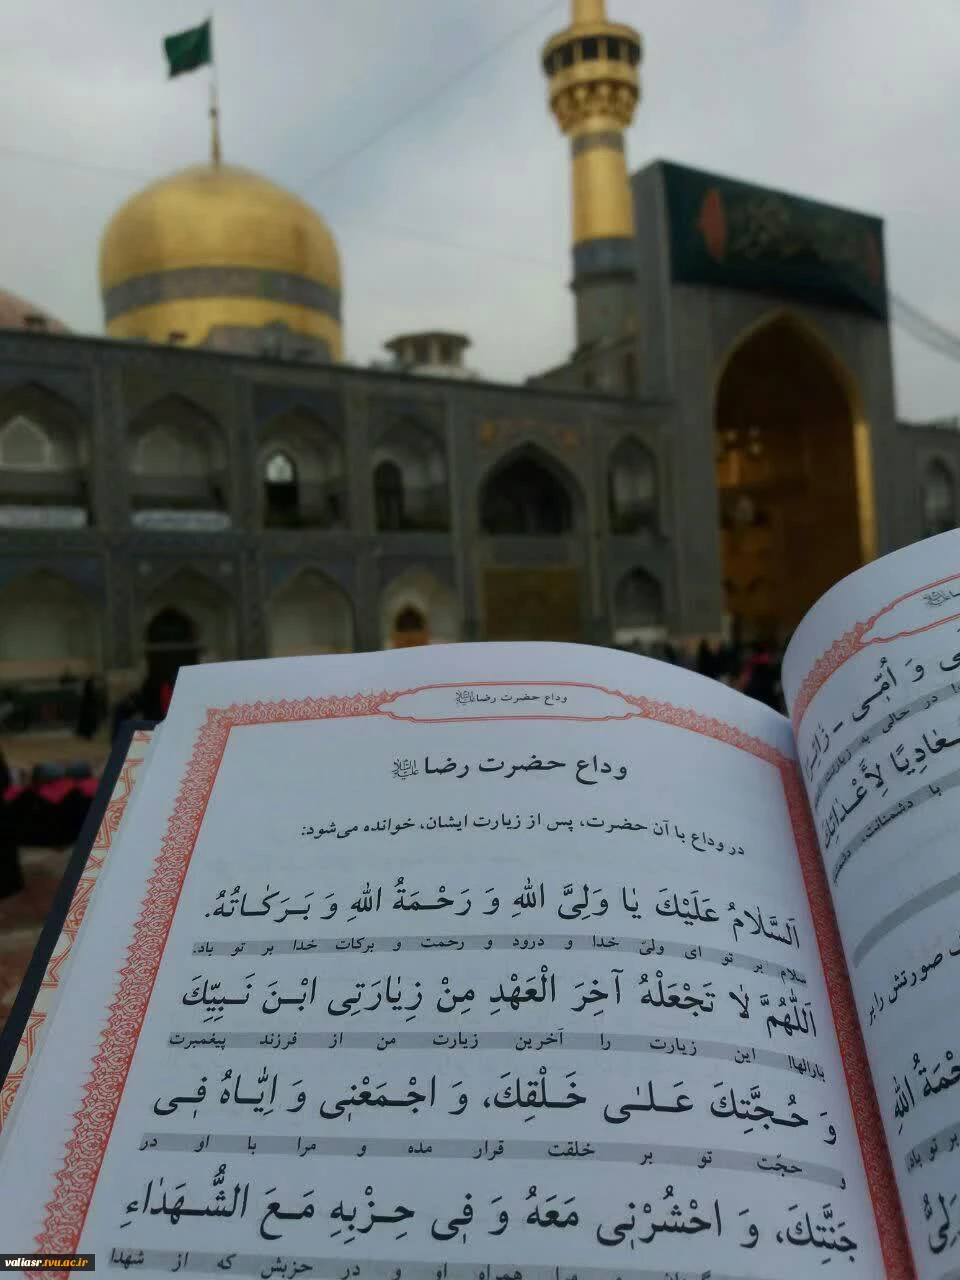 وداع حضرت رضا
وداع حضرت رضا
در وداع با آن حضرت، پس از زیارت ایشان، خوانده می‌شود:
اَلسَّلٰامُ عَلَيْكَ يٰا وَلِيَّ اللهِ وَ رَحْمَةُ اللهِ وَ بَرَكٰاتُهُ.
سلام بر تو ای ولیّ خدا و درود و رحمت و برکات خدا بر تو باد.
اَللّٰهُمَّ لٰا تَجْعَلْهُ آخِرَ الْعَهْدِ مِنْ زِيٰارَتِي ابْنَ نَبِيِّكَ
بارالها! این زیارت را آخرین زیارت من از فرزند پیغمبرت
وَ حُجَّتِكَ عَلىٰ خَلْقِكَ، وَ اجْمَعْنِي وَ اِيّٰاهُ فِي
و حجّت تو بر خلقت قرار مده و مرا با او در
جَنَّتِكَ، وَ احْشُرْنِي مَعَهُ وَ فِي حِزْبِهِ مَعَ الشُّهَدٰاءِ
و مرا همراه او و در حزبش که از شهدا
وَ اُمِّي
در حالی به
دشمنانت
با
صورتش را بر
بر تو باد.
valiasr.tvu.ac.ir